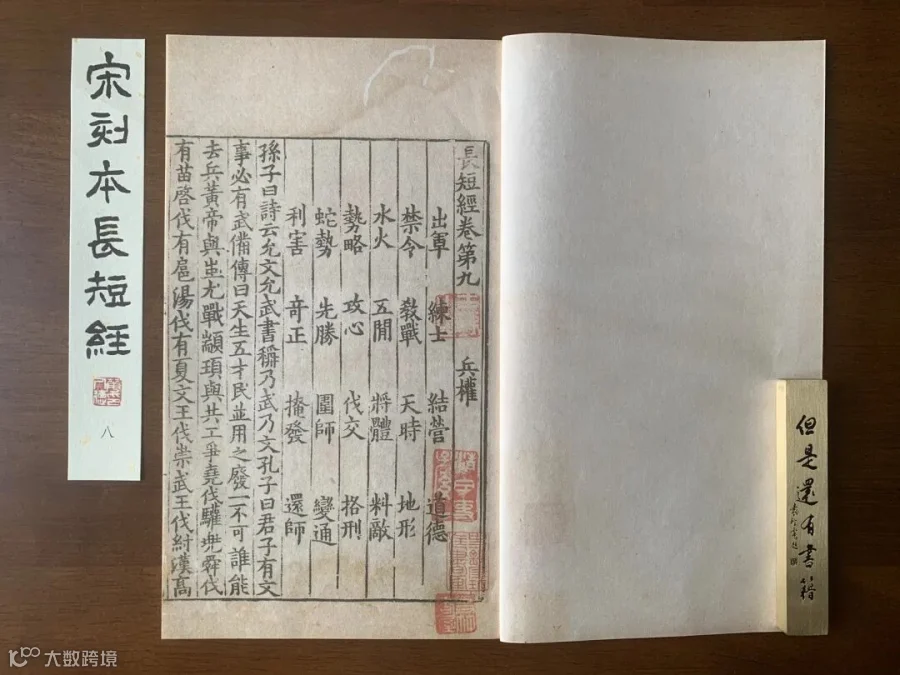 宋刻本長短經
八
長短經卷第九 兵權
出軍 練士 結營 道德
禁令 敎戰 天時 地形
水火 五閒 將體 料敵
勢略 攻心 伐交 格刑
蛇勢 先勝 圍師 變通
利害 竒正 掩發 還師
孫子曰詩云允文允武書稱乃武乃文孔子曰君子有文
事必有武備傳曰天生五才民並用之廢一不可誰能
去兵黃帝與蚩尤戰顓頊與共工爭堯伐驩兠舜伐
有苗啓伐有扈湯伐有夏文王伐崇武王伐紂漢高
但是還有書籍
大数跨境